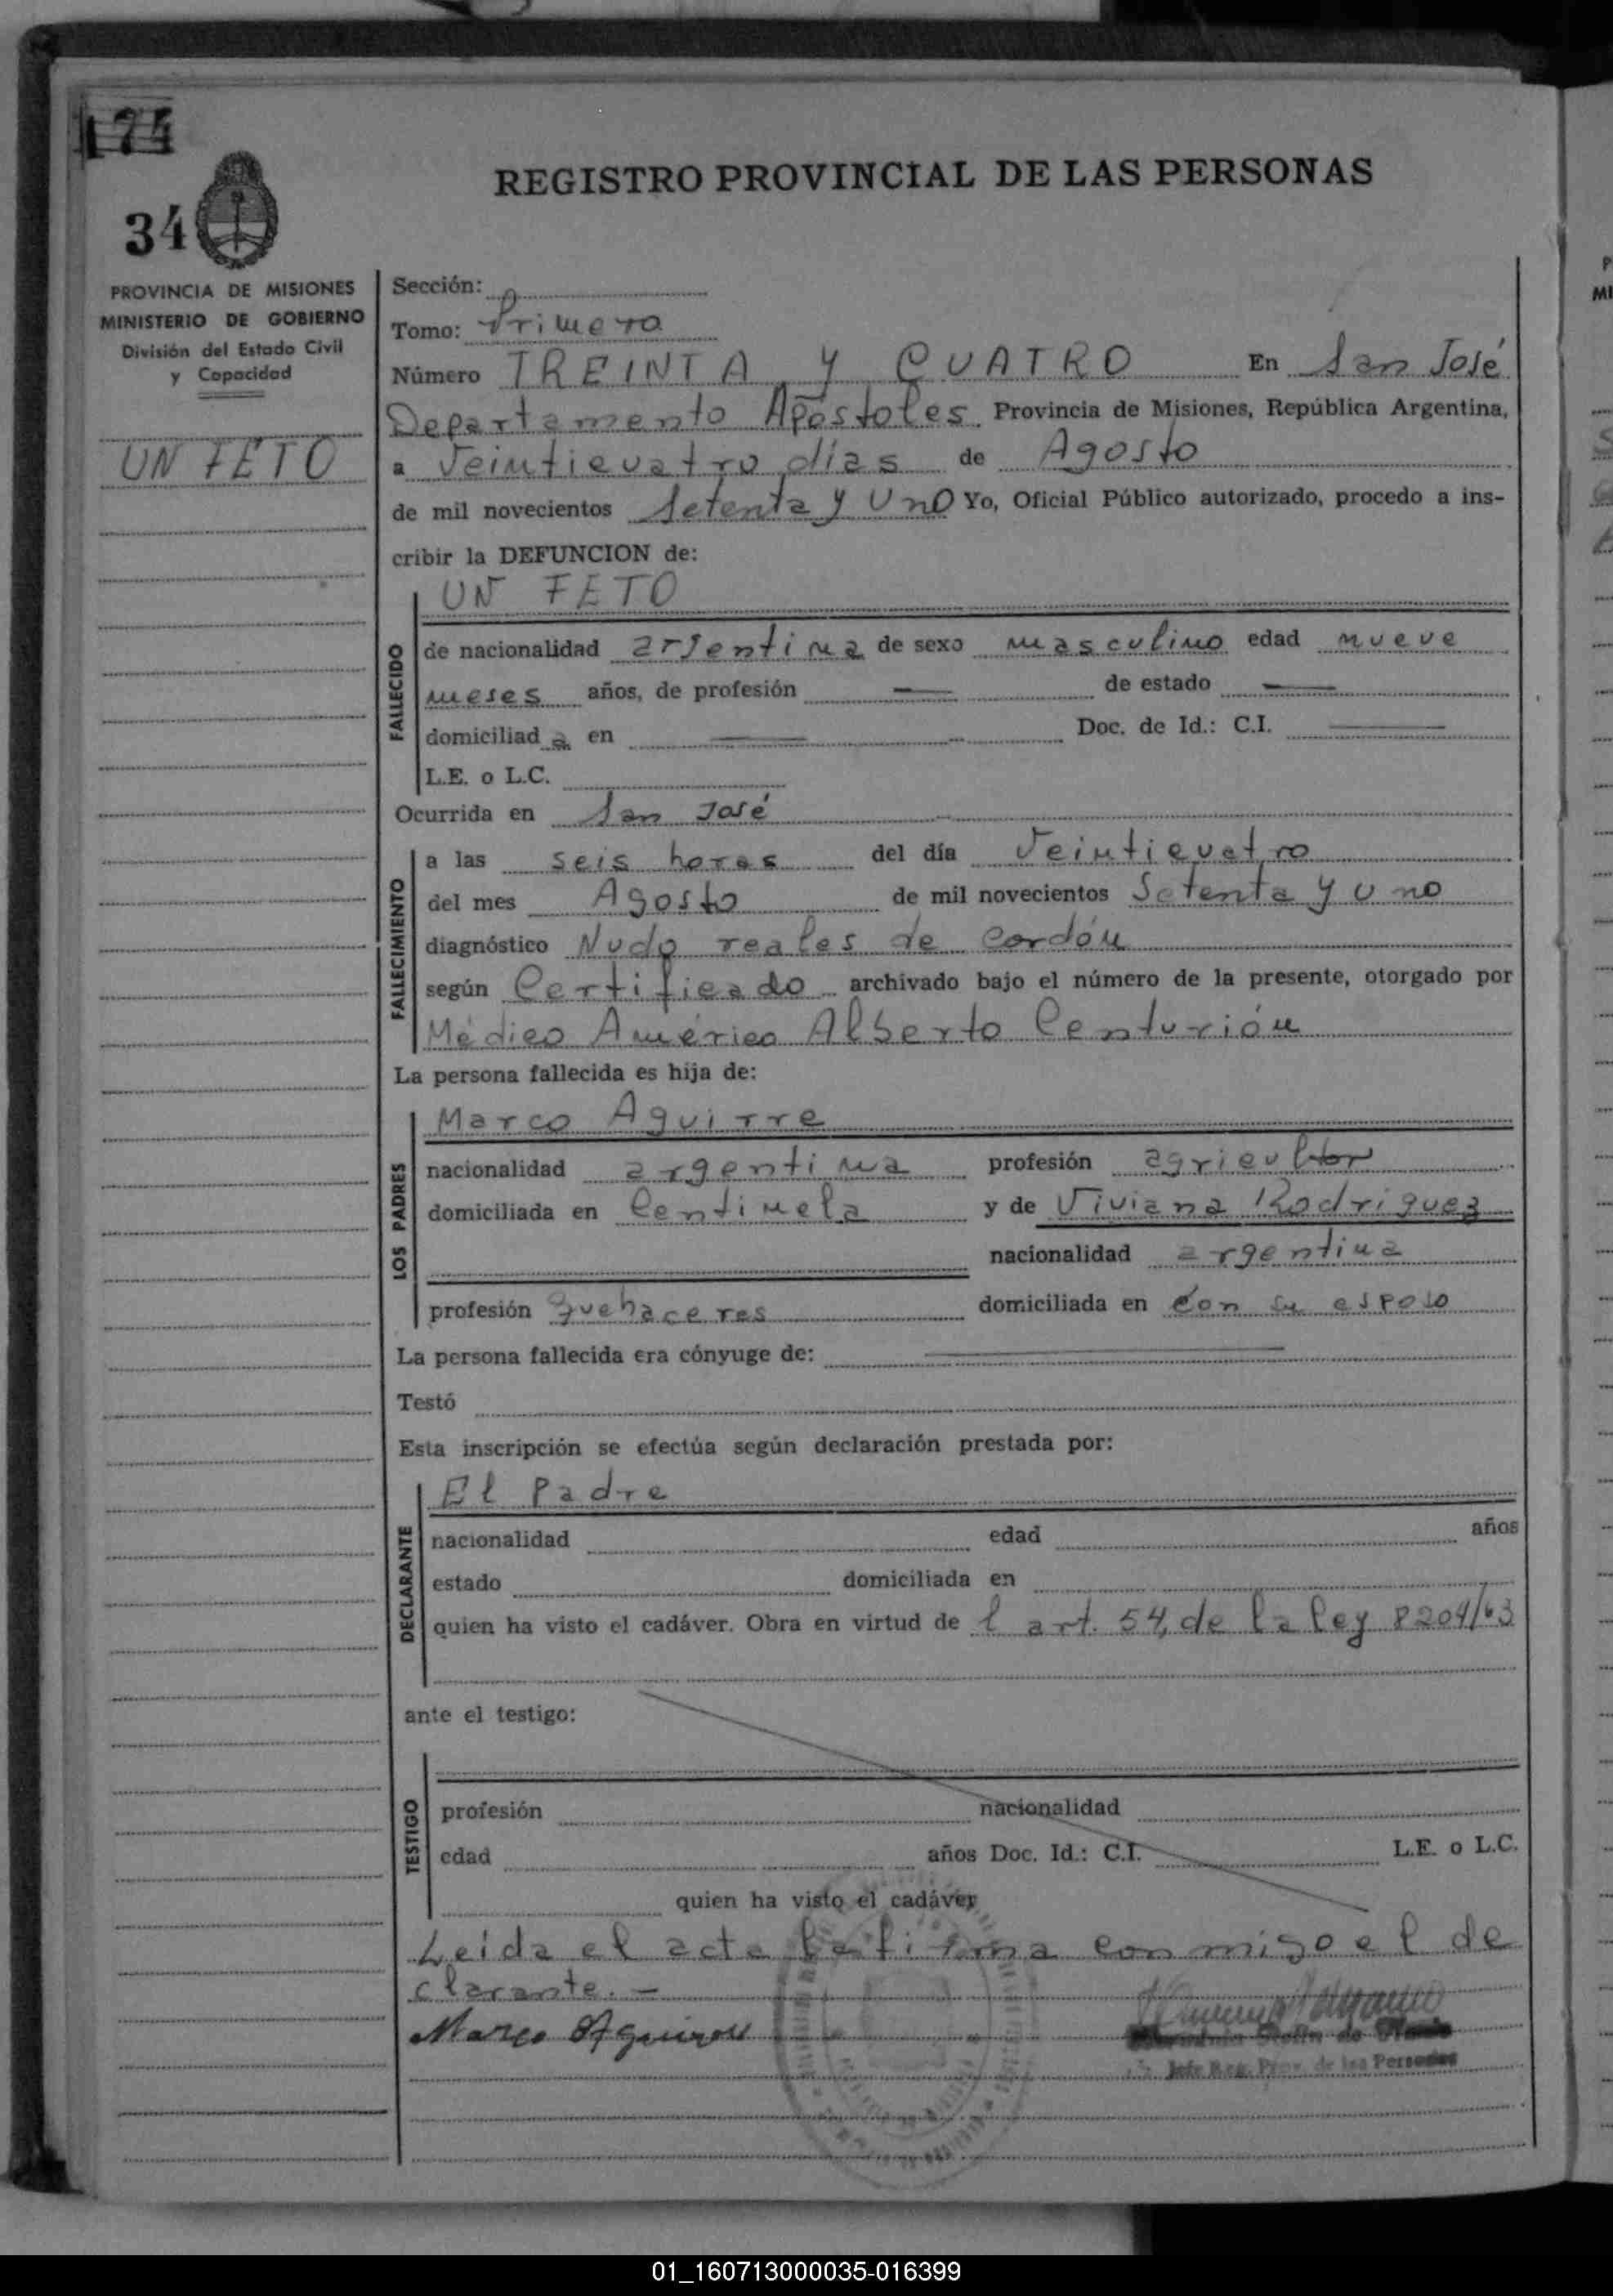 174
REGISTRO PROVINCIAL DE LAS PERSONAS
34
PROVINCIA DE MISIONES
MINISTERIO DE GOBIERNO
División del Estado Civil
y Capacidad
UN FETO
Sección:
Tomo: Primero
Número TREINTA Y CUATRO En San José
Departamento Apóstoles Provincia de Misiones, República Argentina,
a Veinticuatro días de Agosto
de mil novecientos Setenta y Uno Yo, Oficial Público autorizado, procedo a ins-
cribir la DEFUNCION de:
UN FETO
FALLECIDO
de nacionalidad argentina de sexo masculino edad nueve
meses años, de profesión — de estado —
domiciliad a en — Doc. de Id.: C.I. —
L.E. o L.C.
Ocurrida en San José
FALLECIMIENTO
a las seis horas del día Veinticuatro
del mes Agosto de mil novecientos Setenta y uno
diagnóstico Nudo reales de cordón
según Certificado archivado bajo el número de la presente, otorgado por
Médico Américo Alberto Centurión
La persona fallecida es hija de:
LOS PADRES
Marco Aguirre
nacionalidad argentina profesión agricultor
domiciliada en Centinela y de Viviana Rodriguez
nacionalidad argentina
profesión quehaceres domiciliada en con su esposo
La persona fallecida era cónyuge de: —
Testó
Esta inscripción se efectúa según declaración prestada por:
DECLARANTE
El Padre
nacionalidad edad años
estado domiciliada en
quien ha visto el cadáver. Obra en virtud de l art. 54, de la ley 8204/63
ante el testigo:
TESTIGO
profesión nacionalidad
edad años Doc. Id.: C.I. L.E. o L.C.
quien ha visto el cadáver
Leída el acta la firma con migo el de
clarante. —
Marco Aguirre
Jefe Reg. Prov. de las Personas
01_160713000035-016399